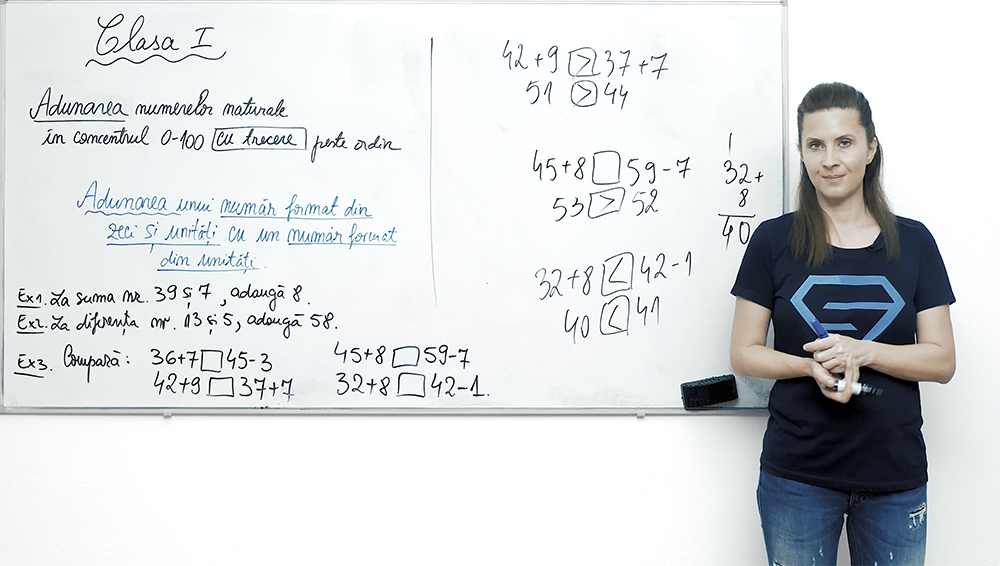 Clasa I
Adunarea numerelor naturale
în concentrul 0-100 cu trecere peste ordin
Adunarea unui număr format din
zeci și unități cu un număr format
din unități.
Ex1. La suma nr. 39 și 7, adaugă 8.
Ex2. La diferența nr. 13 și 5, adaugă 58.
Ex3. Compară: 36+7□45-3 45+8□59-7
42+9□37+7 32+8□42-1.
42+9 > 37+7
51 > 44
45+8□59-7
53 > 52
32+8 < 42-1
40 < 41
1
32+
8
40